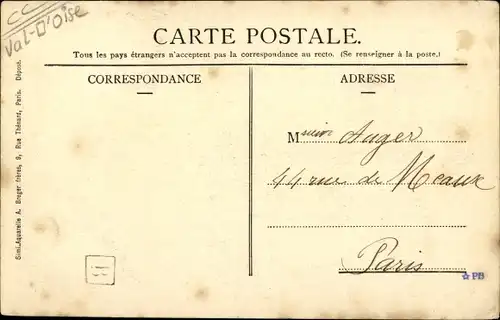 CC
Val-D'Oise
CARTE POSTALE.
Tous les pays étrangers n'acceptent pas la correspondance au recto. (Se renseigner à la poste.)
CORRESPONDANCE
ADRESSE
Monsieur Auger
44 rue de Meaux
Paris
Simi-Aquarelle A. Breger frères, 9, Rue Thénard, Paris. Déposé.
B
☆ PB